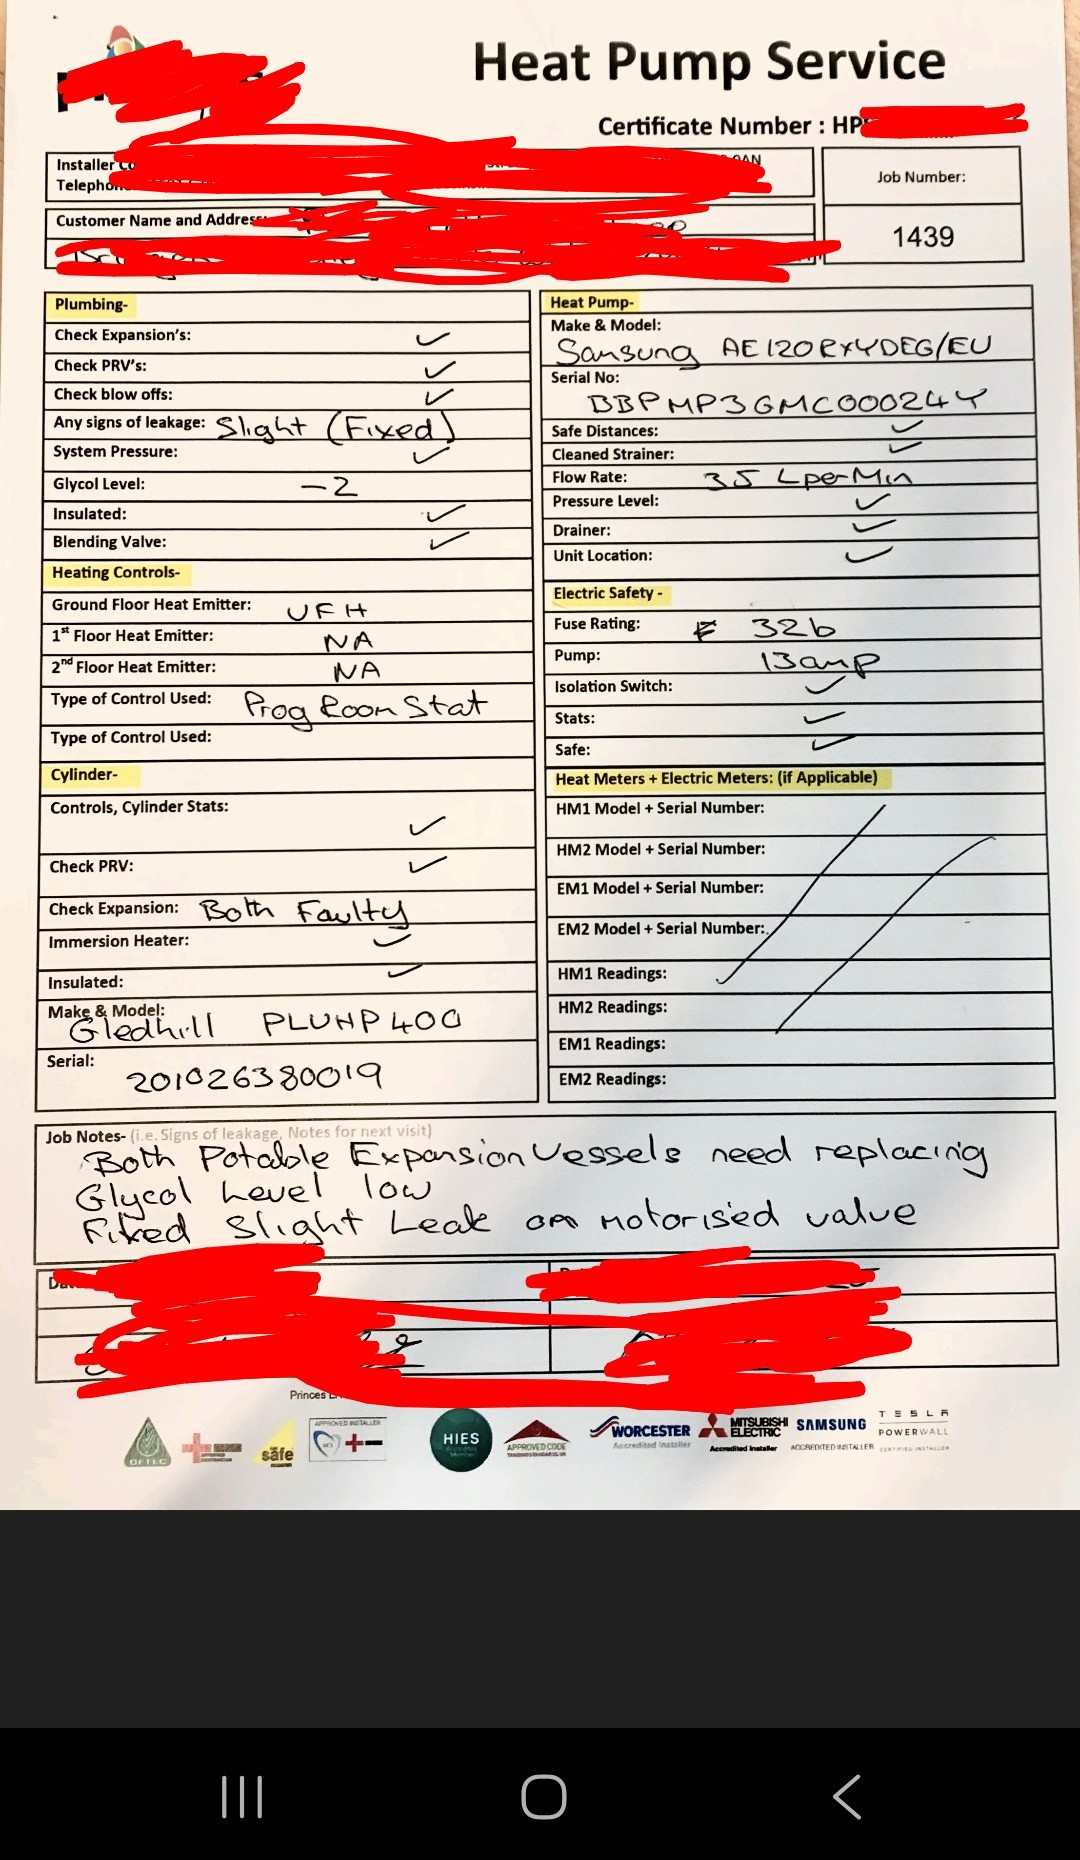 Heat Pump Service
Certificate Number : HP
Installer
Job Number:
1439
Customer Name and Address
Plumbing-
Check Expansion's: ✓
Check PRV's: ✓
Check blow offs: ✓
Any signs of leakage: Slight (Fixed)
System Pressure: ✓
Glycol Level: -2
Insulated: ✓
Blending Valve: ✓
Heating Controls-
Ground Floor Heat Emitter: UFH
1st Floor Heat Emitter: NA
2nd Floor Heat Emitter: NA
Type of Control Used: Prog Room Stat
Type of Control Used:
Cylinder-
Controls, Cylinder Stats: ✓
Check PRV: ✓
Check Expansion: Both Faulty
Immersion Heater: ✓
Insulated: ✓
Make & Model:
Gledhill PLUHP400
Serial:
201026380019
Heat Pump-
Make & Model:
Samsung AE120RXYDEG/EU
Serial No:
BBPMP3GMC00024Y
Safe Distances: ✓
Cleaned Strainer: ✓
Flow Rate: 35 L per Min
Pressure Level: ✓
Drainer: ✓
Unit Location: ✓
Electric Safety -
Fuse Rating: 32b
Pump: 13amp
Isolation Switch: ✓
Stats: ✓
Safe: ✓
Heat Meters + Electric Meters: (if Applicable)
HM1 Model + Serial Number:
HM2 Model + Serial Number:
EM1 Model + Serial Number:
EM2 Model + Serial Number:
HM1 Readings:
HM2 Readings:
EM1 Readings:
EM2 Readings:
Job Notes- (i.e. Signs of leakage, Notes for next visit)
Both Potable Expansion Vessels need replacing
Glycol Level low
Fixed Slight Leak on Motorised valve
Princes
OFTEC
safe
APPROVED INSTALLER
HIES
APPROVED CODE
WORCESTER
Accredited Installer
MITSUBISHI
ELECTRIC
Accredited Installer
SAMSUNG
ACCREDITED INSTALLER
TESLA
POWERWALL
CERTIFIED INSTALLER